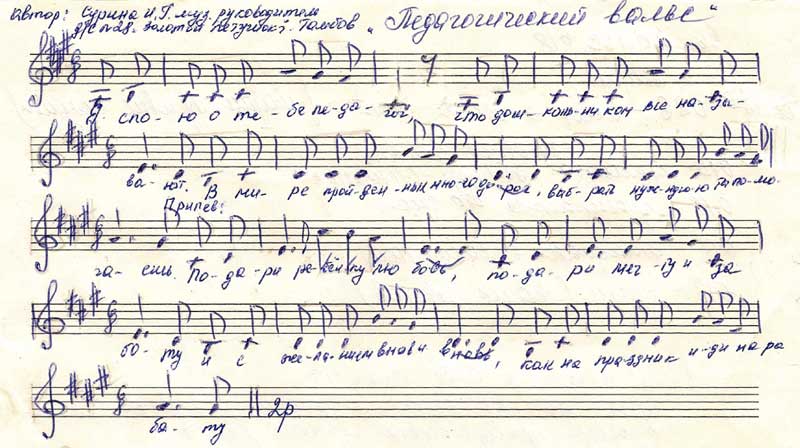 Автор: Сурина И.Г. муз. руководителем
д/с "Золотой петушок" г. Тамбов „Педагогический вальс“
Я спо-ю о те-бе пе-да-гог, что дош-коль-ни-ком все на-зы-
ва-ют. В ми-ре прой-ден-ных мно-го до-рог, выб-рать нуж-ную ты по-мо-
Припев:
га-ешь. По-да-ри ре-бён-ку лю-бовь, по-да-ри меч-ту и за
бо-ту и с же-ла-нием вновь и вновь, как на праздник и-ди на ра
бо-ту 2р